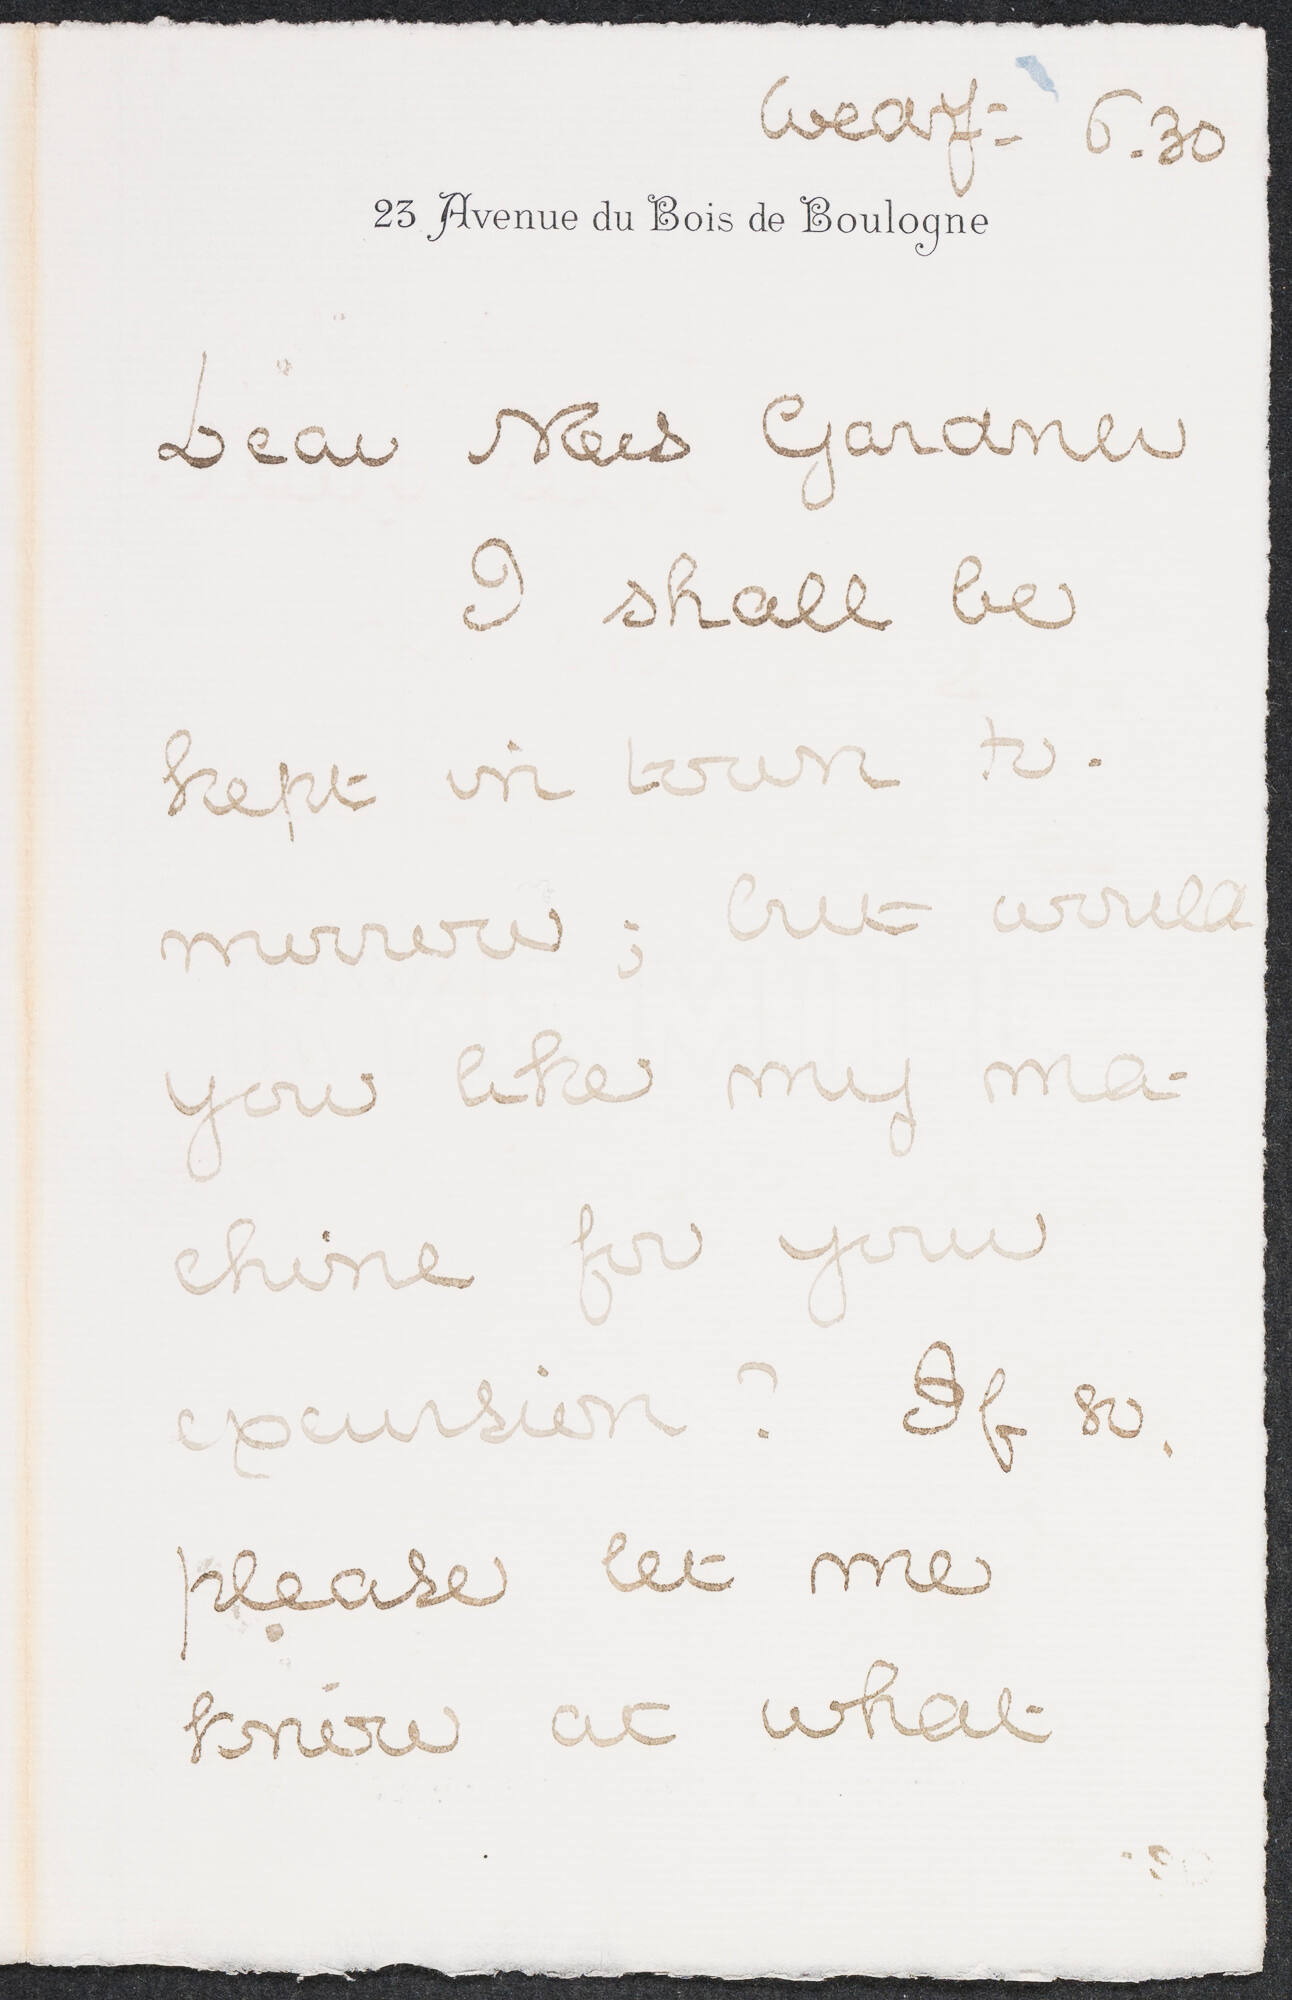 Wedy= 6.30
23 Avenue du Bois de Boulogne
Dear Mrs Gardner
I shall be
kept in town to-
morrow; but would
you like my ma-
chine for your
excursion? If so,
please let me
know at what